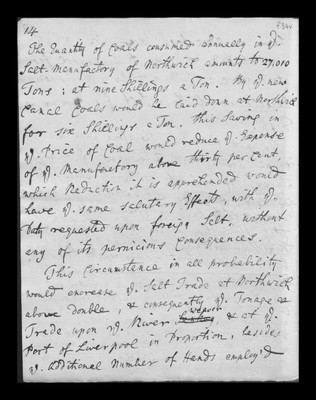 14
The Quantity of Coals consumed annually in ye.
Salt-Manufactory of Northwich amounts to 27,000
Tons: at nine Shillings a Ton. By ye. new
Canal Coals would be laid down at Northwich
for six Shillings a Ton. This Saving in
ye. Price of Coal would reduce ye. Expense
of ye. Manufactory above thirty per Cent
which Reduction it is apprehended would
have ye. same salutary Effects, with ye.
Duty requested upon foreign Salt, without
any of its pernicious Consequences.
This Circumstance in all probability
would encrease ye. Salt Trade at Northwich
above Double, & consequently ye. Tonage &
Trade upon ye. River Weaver, & at ye.
Port of Liverpool in Proportion, besides
ye. Additional Number of Hands employ'd